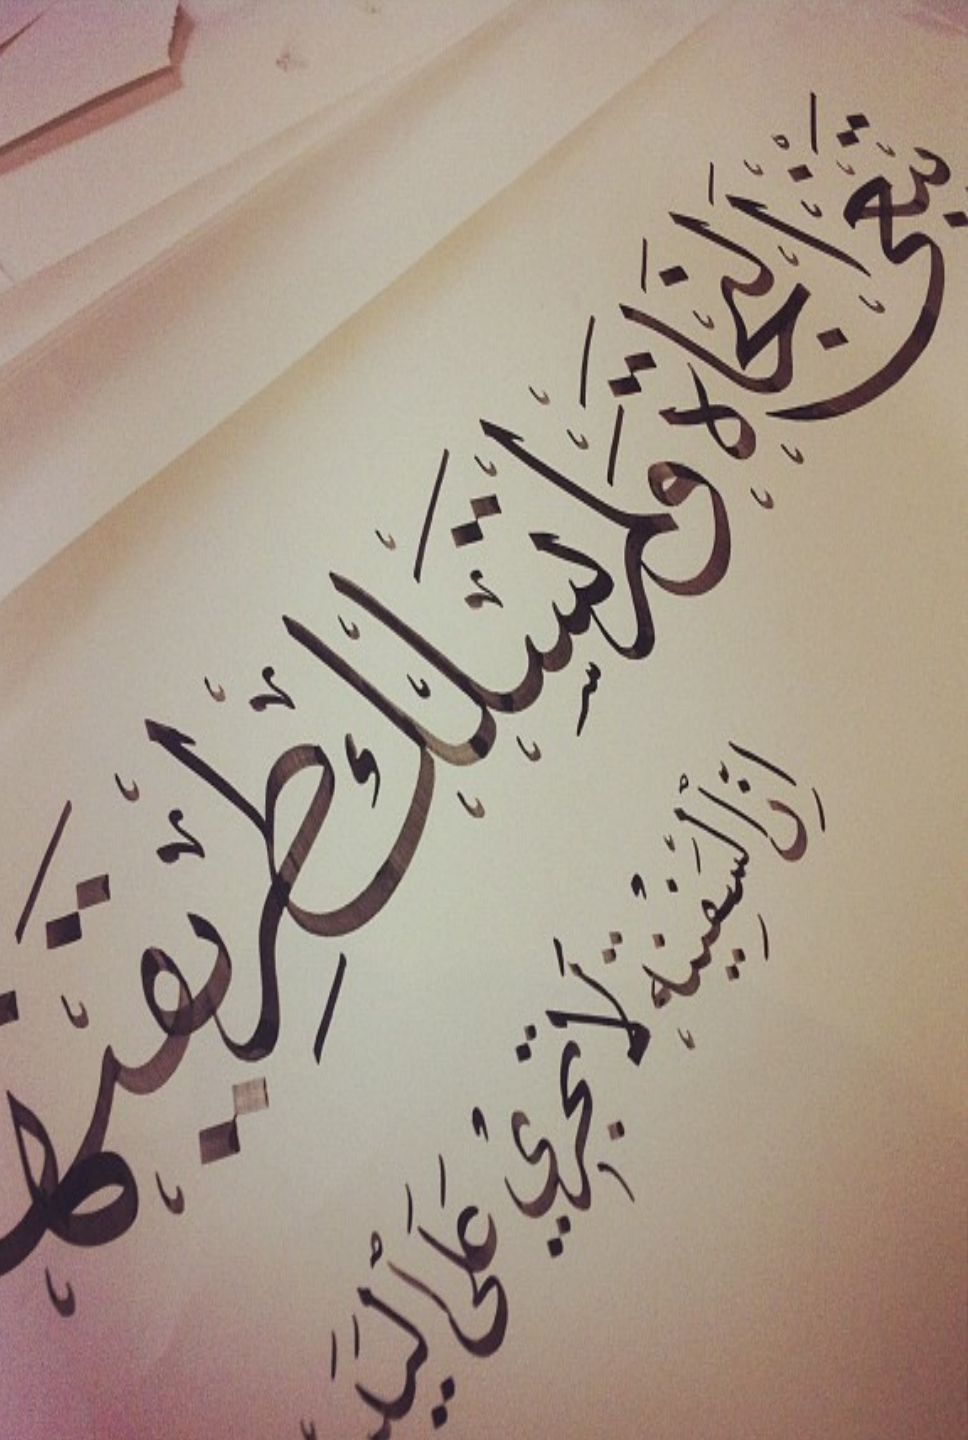 تبغي النجاة ولم تسلك طريقتها
إنَّ السَّفِينَةَ لَا تَجْرِي عَلَى اليَبَـ